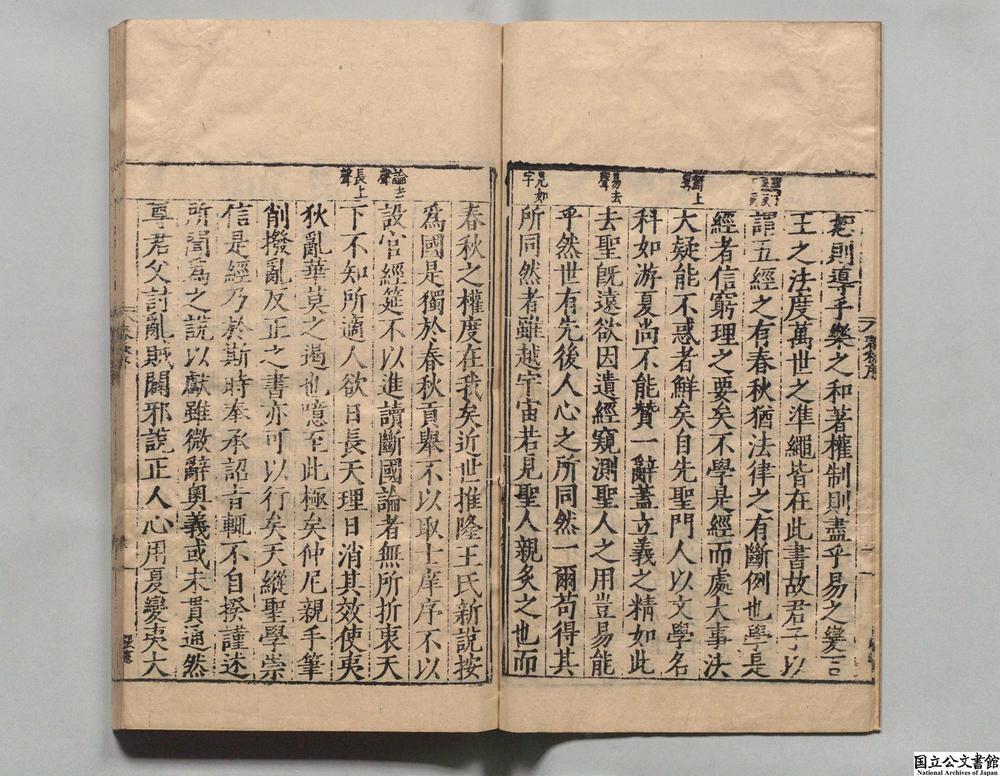 恕則導乎樂之和著權制則盡乎易之變百
王之法度萬世之準繩皆在此書故君子以
謂五經之有春秋猶法律之有斷例也學是
經者信窮理之要矣不學是經而處大事決
大疑能不惑者鮮矣自先聖門人以文學名
科如游夏尚不能贊一辭蓋立義之精如此
去聖既遠欲因遺經窺測聖人之用豈易能
乎然世有先後人心之所同然一爾苟得其
所同然者雖越宇宙若見聖人親炙之也而
鮮上聲
易去聲
見如字
春秋之權度在我矣近世推隆王氏新說按
為國是獨於春秋貢舉不以取士庠序不以
設官經筵不以進讀斷國論者無所折衷天
下不知所適人欲日長天理日消其效使夷
狄亂華莫之遏也噫至此極矣仲尼親手筆
削撥亂反正之書亦可以行矣天縱聖學崇
信是經乃於斯時奉承詔旨輒不自揆謹述
所聞為之說以獻雖微辭奧義或未貫通然
尊君父討亂賊闢邪說正人心用夏變夷大
論去聲
長上聲
国立公文書館
National Archives of Japan